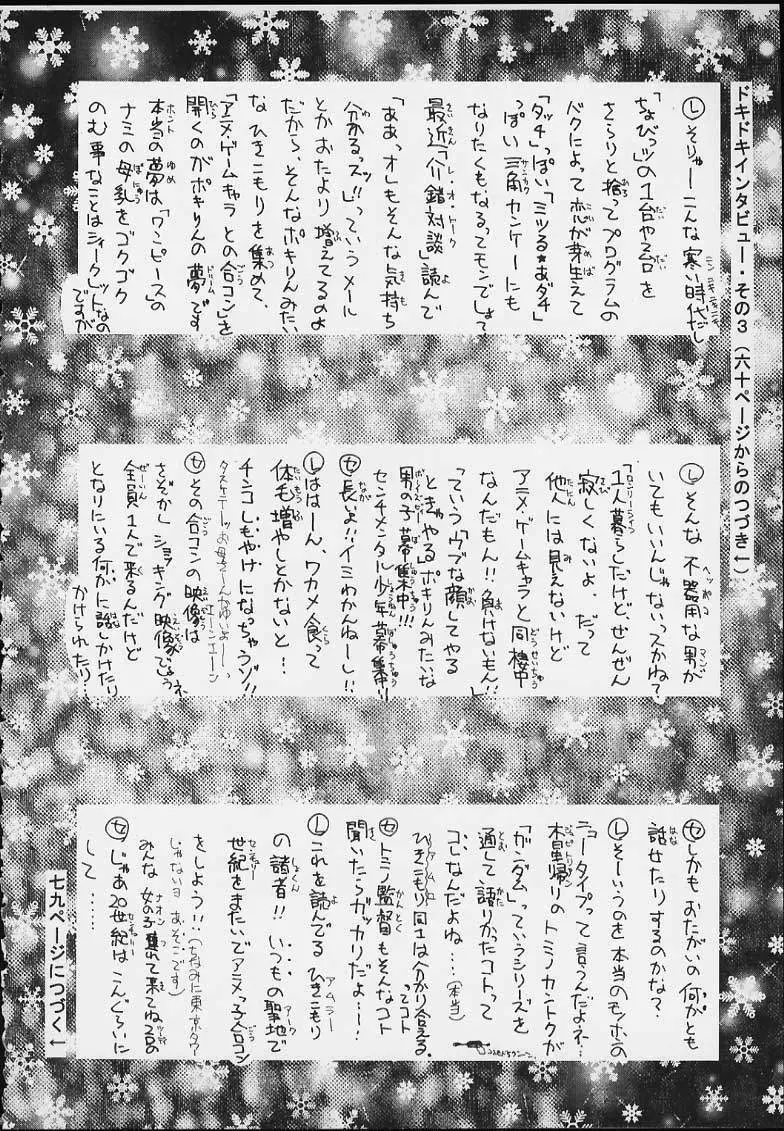 ドキドキインタビュー・その3 (六十ページからのつづき↓)
Ⓛそりゃーこんな寒い時代だし
「ちょびっツ」の1台や2台を
さらりと捨ってプログラムの
バグによって恋が芽生えて
「タッチ」っぽい「ミツる★あダチ」
っぽい三角カンケーにも
なりたくもなるってモンでしょて
最近「介錯対談」読んで
「ああっオレもそんな気持ち
分かるっスッ!!」っていうメール
とかおたより増えてるのよ
だから、そんなポキりんみたい
なひきこもりを集めて、
「アニメ・ゲームキャラとの合コン」を
開くのがポキりんの夢です
本当の夢は「ワンピース」の
ナミの母乳をゴクゴク
のむ事なことはシィークレットなの
ですが
Ⓛそんな不器用な男が
いてもいいんじゃないってかね?
「1人暮らしだけど、ぜんぜん
寂しくないよ。だって
他人には見えないけど
アニメ・ゲームキャラと同棲中
なんだもん!!負けないもん!!」
っていうウブな顔してやる
ときゃやるポキりんみたいな
男の子募集中!!!
センチメンタル少年募集中!!
Ⓣ長いよ!!イミわかんねーし!!
Ⓛははーん、ワカメ食って
体毛増やしとかないと!・
チンコしもやけになっちゃうゾ!!
Ⓣその合コンの映像は
さぞかしショッキング映像でしょうネ、
全員1人で来るんだけど
となりにいる何かに話しかけたり…
かけられたり…
Ⓣしかもおたがいの何かとも
話せたりするのかな?
Ⓛそーいうのを本当のモノホンの
ニュータイプって言うんだよネ…
木星帰りのトミノカントクが
「ガンダム」っていうシリーズを
通して語りかったコトって
コレなんだよね…(本当)
ひきこもり同士は分かり合える。
ってコト
Ⓣトミノ監督もそんなコト
聞いたらガッカリだよ…!
Ⓛこれを読んでるひきこもり
の諸君!!いつもの聖地で
世紀をまたいでアニメっ子合コン
をしよう!!(ちなみに東京タワー
じゃないヨあそこです)
みんな女の子連れて来てね2台の
Ⓣじゃあ20世紀はこんぐらいに
して……
七九ページにつづく↓